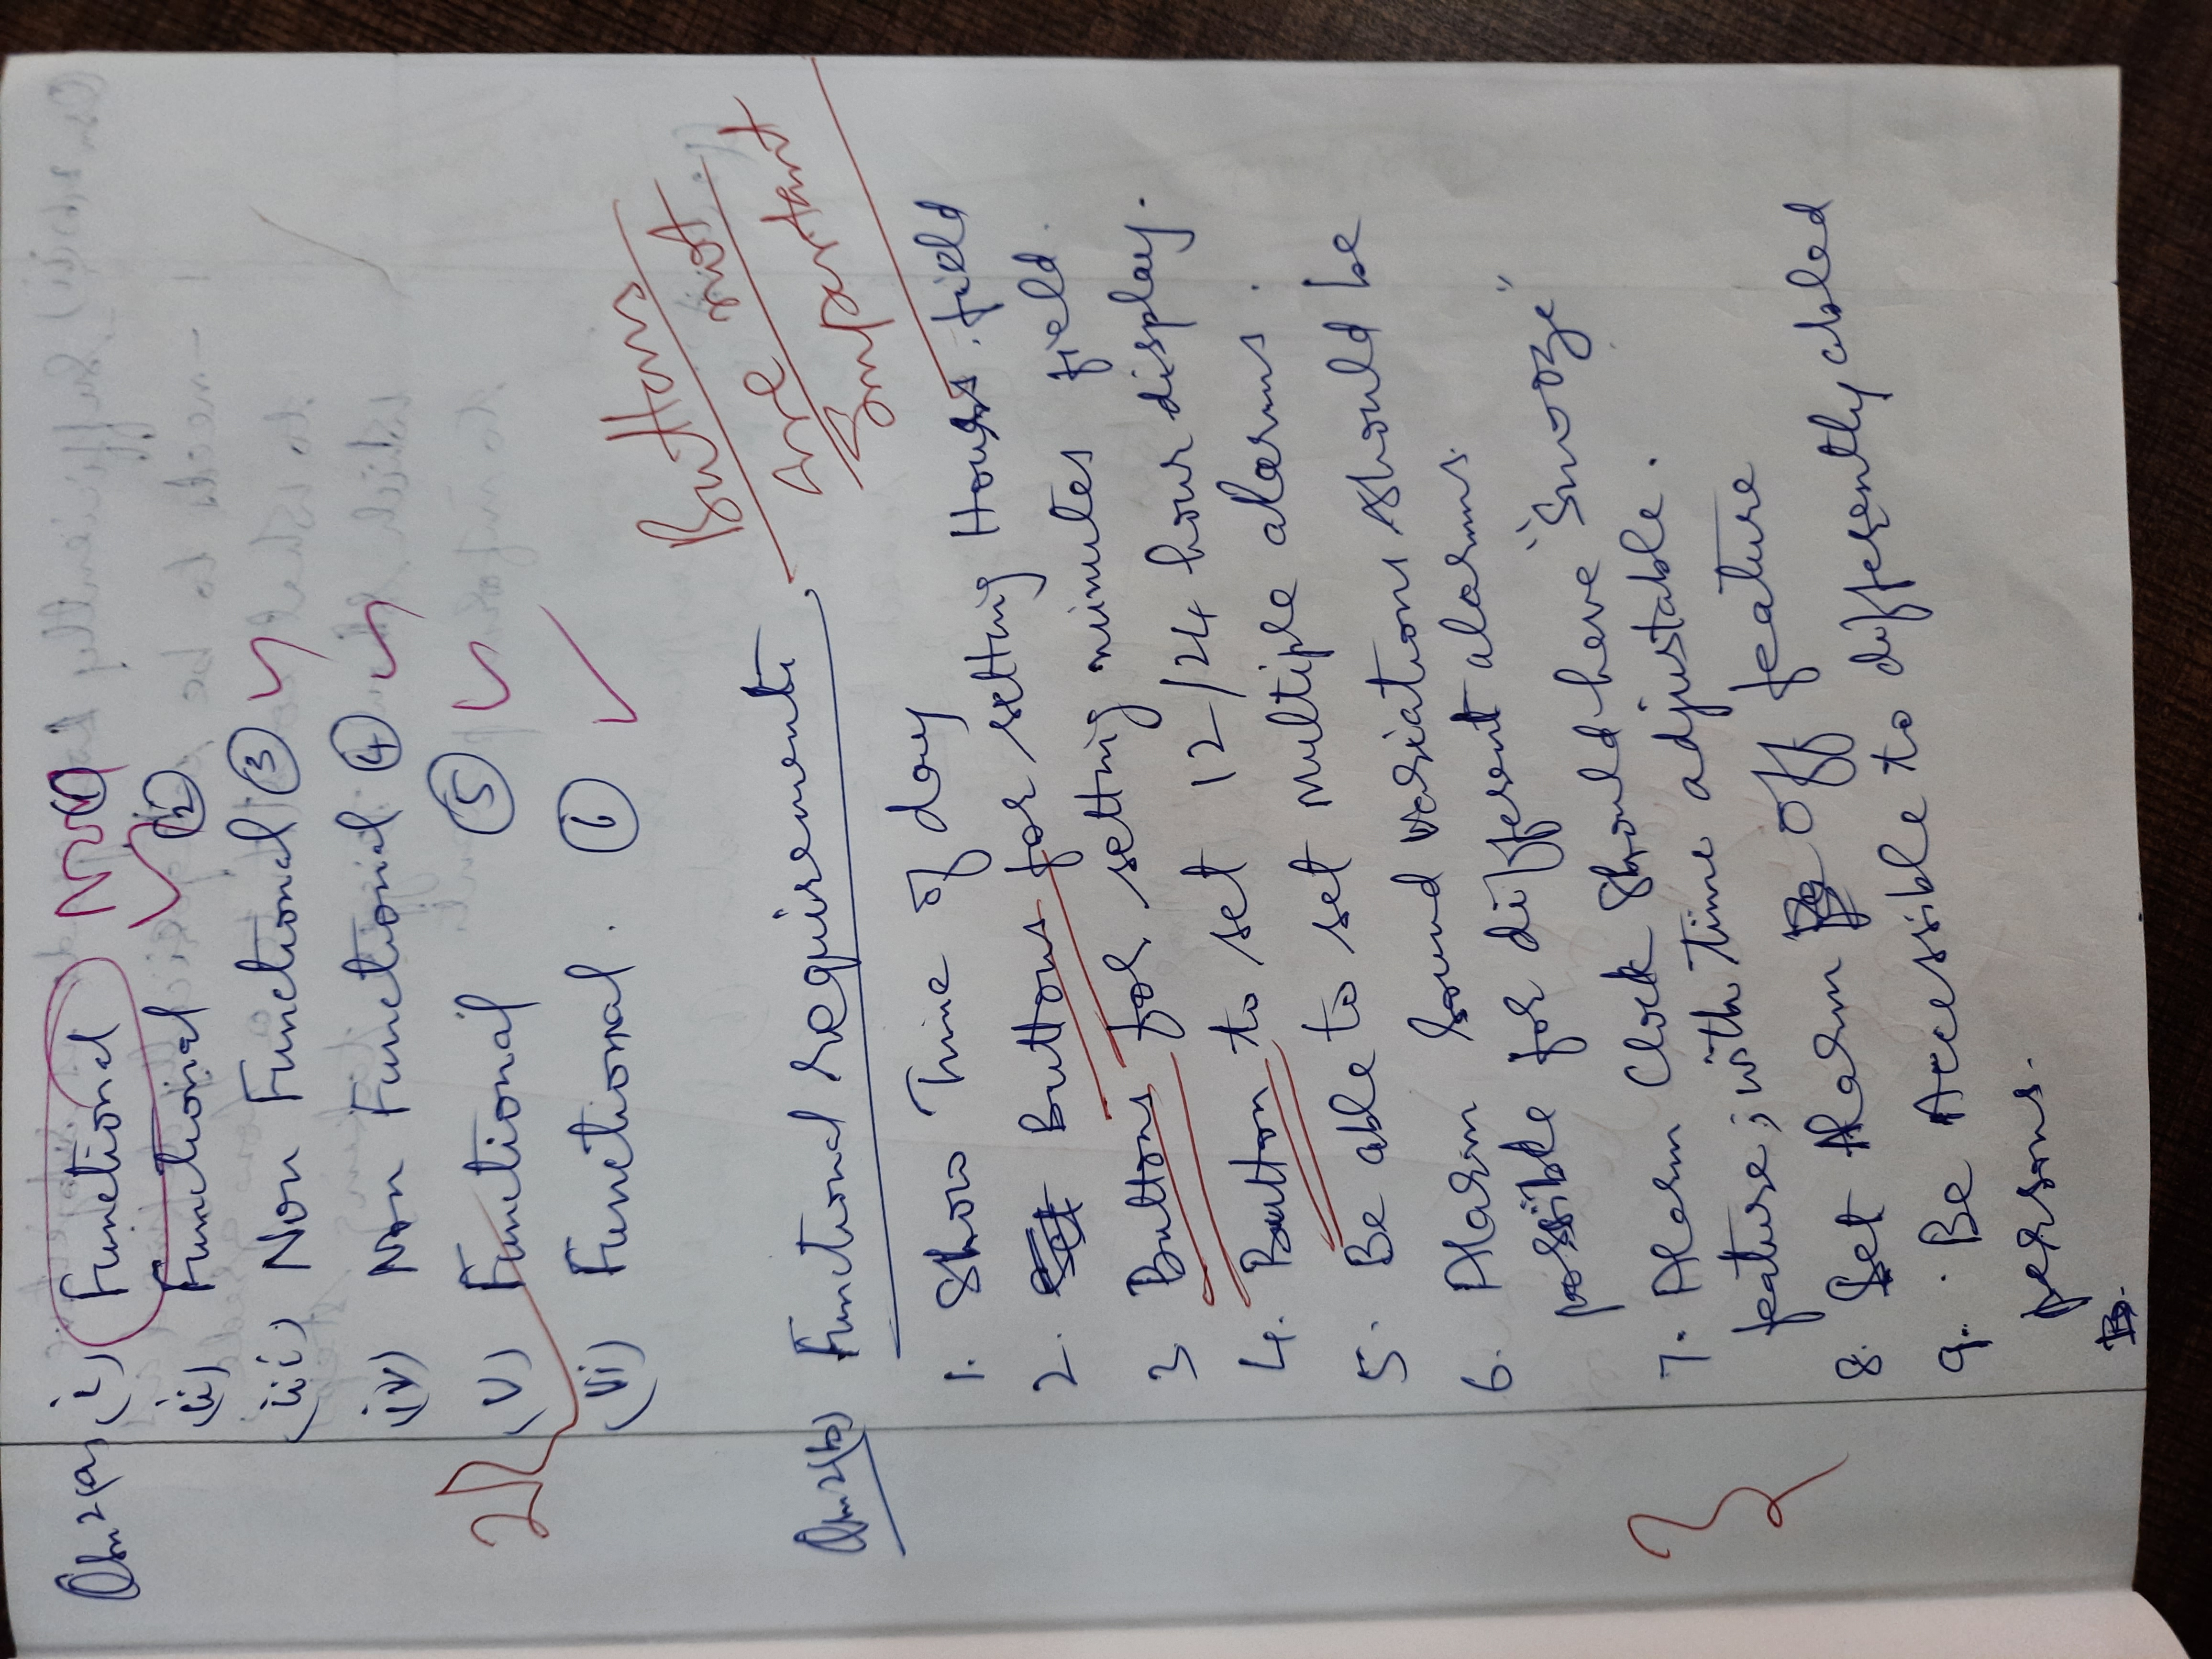 Qsn 2(a) (i) Functional Non ①
(ii) Functional ②
(iii) Non Functional ③
(iv) Non Functional ④
(v) Functional ⑤
(vi) Functional. ⑥
Buttons
are not
Important
Qsn 2(b) Functional requirements
1. Show Time of day
2. Set Buttons for setting Hours field
3 Buttons for setting minutes field.
4. Button to set 12/24 hour display.
5. Be able to set multiple alarms.
6. Alarm sound variations should be
possible for different alarms.
7. Alarm Clock should have "Snooze"
feature; with time adjustable.
8. Set Alarm off feature
9. Be Accessible to differently abled
persons.